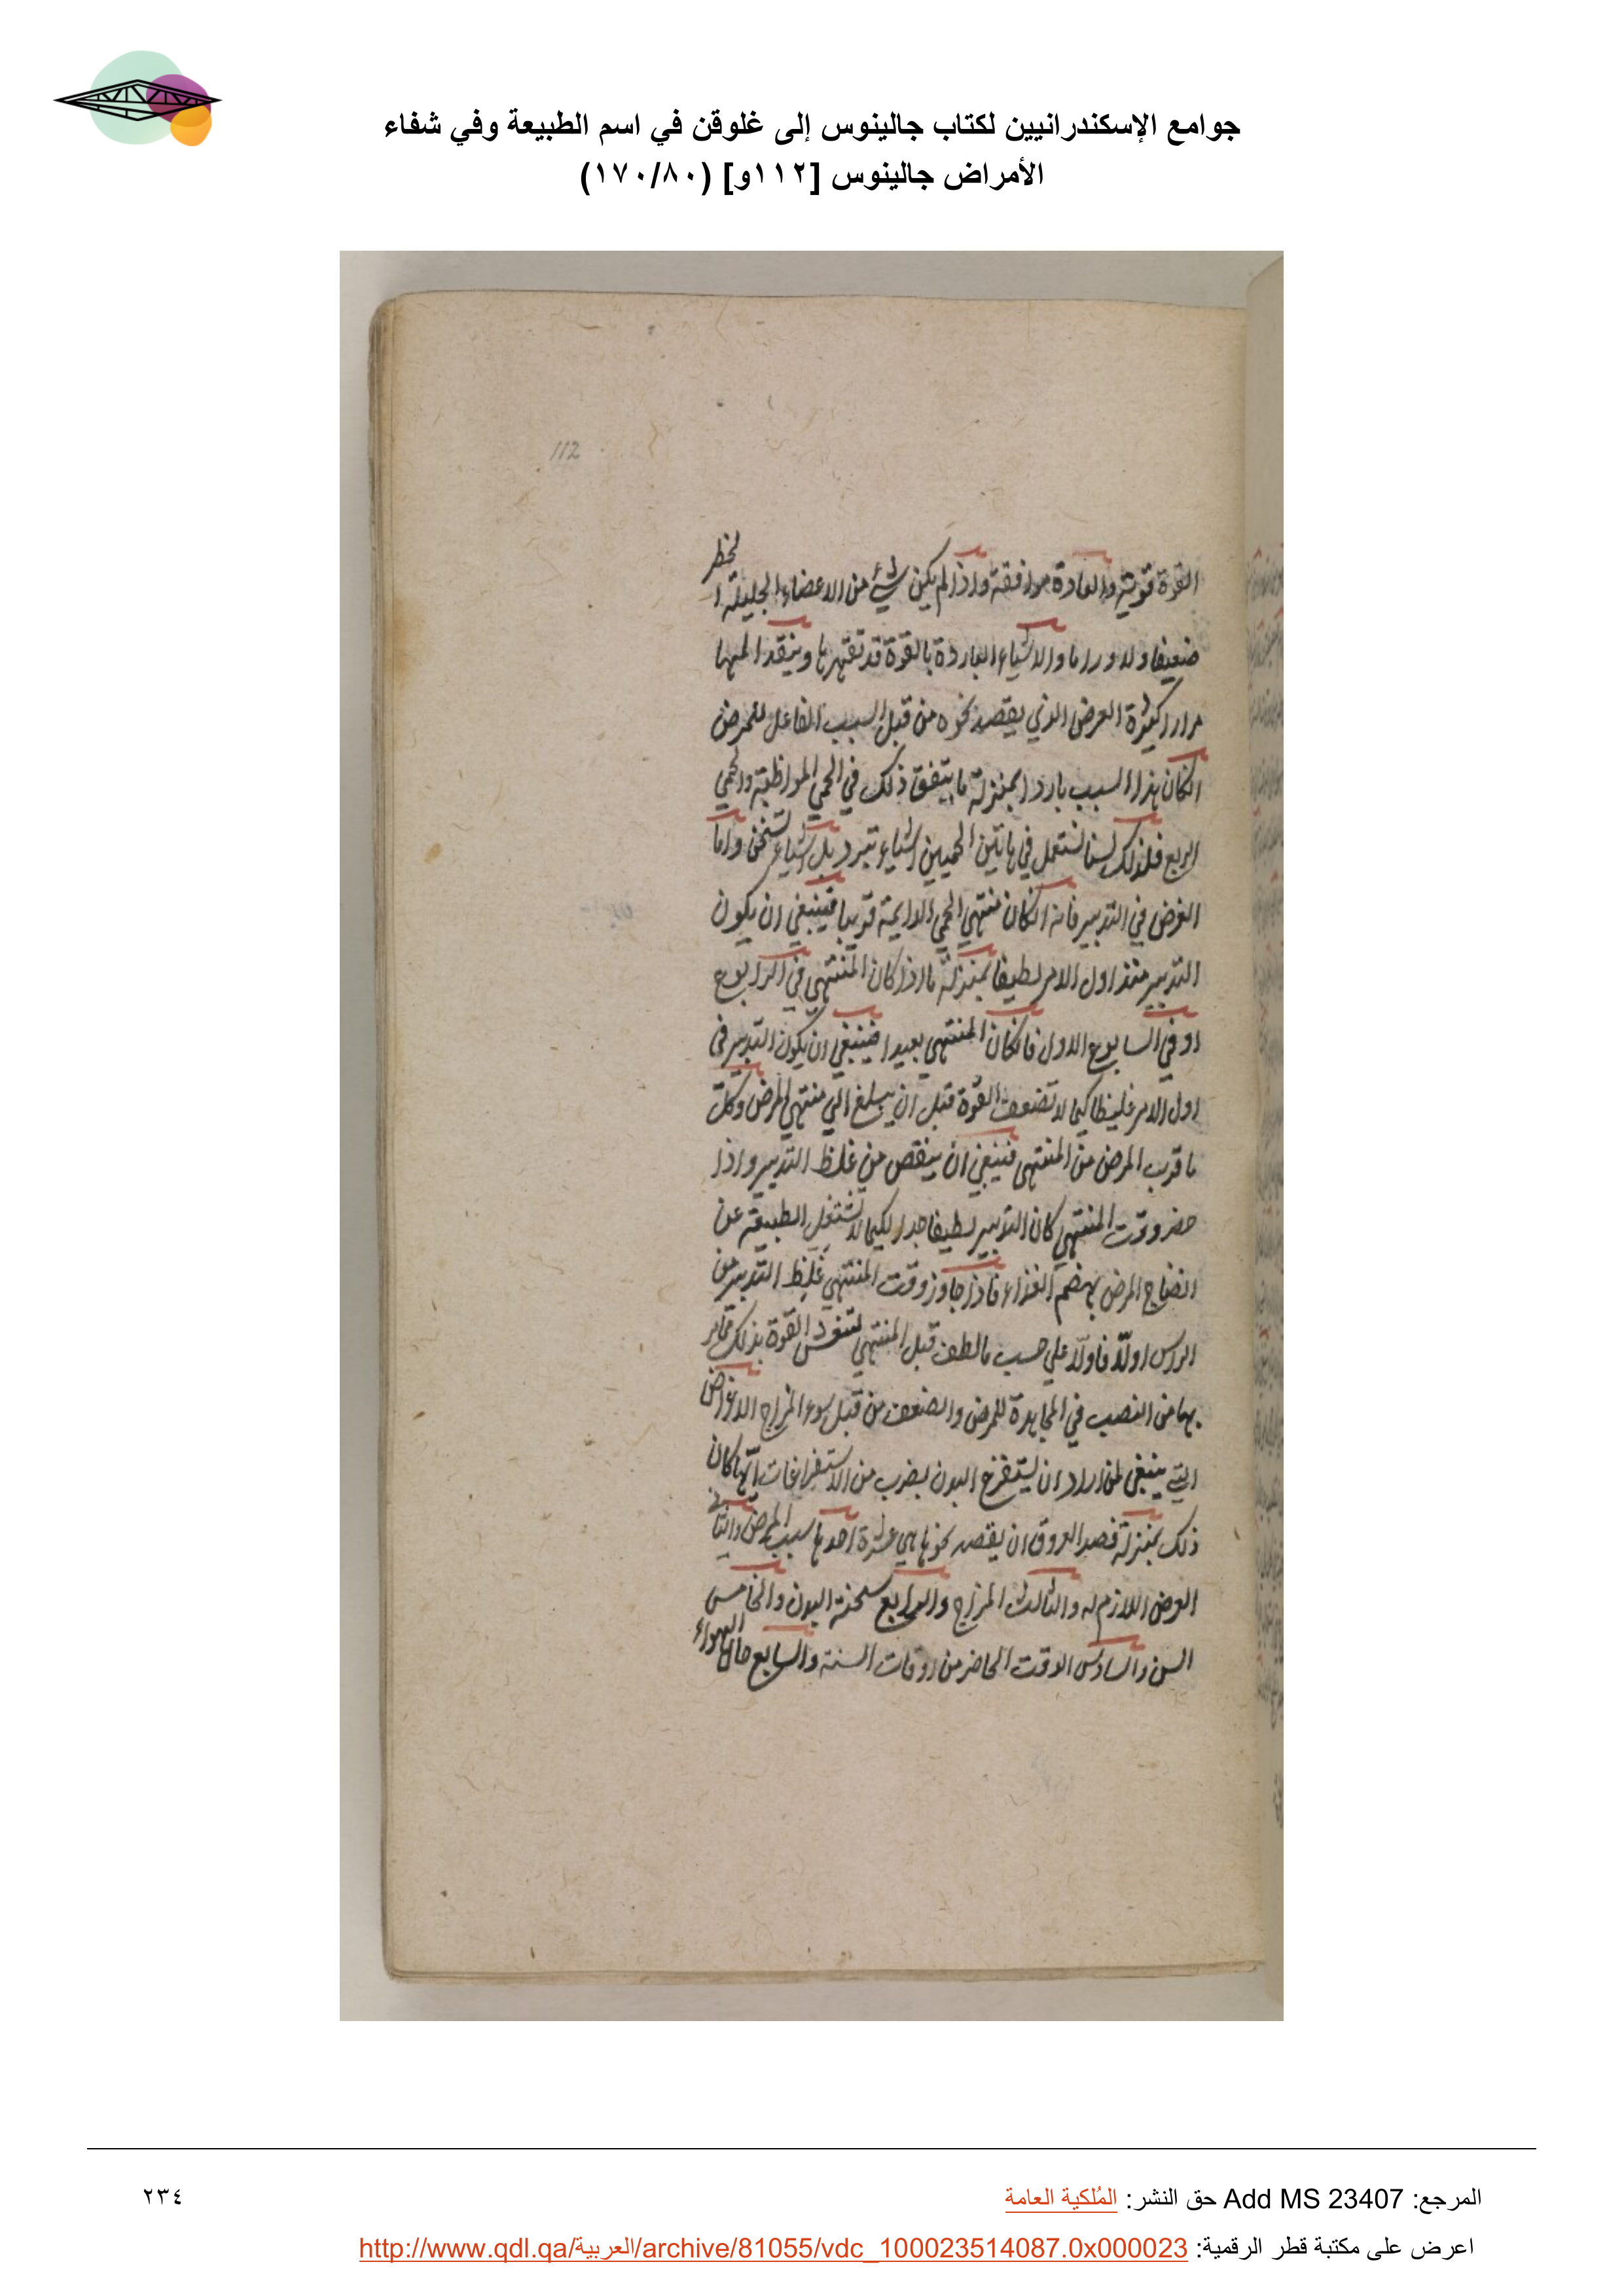 جوامع الإسكندرانيين لكتاب جالينوس إلى غلوقن في اسم الطبيعة وفي شفاء
الأمراض جالينوس [١١٢و] (١٧٠/٨٠)
112
القوة قوية والعادة موافقة واذا لم يكن شيء من الاعضاء الجليلة الخطر
ضعيفا ولا وارما والاشياء الباردة بالقوة قد تقهرها وينقد المها
مرارا كثيرة العرض الذي يقصد نحوه من قبل السبب الفاعل للمرض
انكان هذا السبب باردا بمنزلة ما يتفق ذلك في الحمي المواظبة والحمي
الربع فلذلك لسنا نستعمل في هاتين الحميين اشياء تبرد بل اشياء تسخن واما
الغرض في التدبير فانه انكان منتهي الحمي الدايمة قريبا فينبغي ان يكون
التدبير منذ اول الامر لطيفا بمنزلة ما اذا كان المنتهي في الرابوع
او في السابوع الاول فانكان المنتهي بعيدا فينبغي ان يكون التدبير في
اول الامر غليظا كيما لا تضعف القوة قبل ان يبلغ الي منتهي المرض وكل
ما قرب المرض من المنتهي فينبغي ان ينقص من غلظ التدبير واذا
حضر وقت المنتهي كان التدبير لطيفا جدا لكيما لا تشتغل الطبيعة عن
انضاج المرض بهضم الغذاء فاذا جاوز وقت المنتهي غلظ التدبير من
الراس اولا فاولا علي حسب ما لطف قبل المنتهي القوة بذلك مما مر
بها من النصب في المجاهدة للمرض والضعف من قبل سوء المزاج الاغراض
التي ينبغي لمن اراد ان يستفرغ البدن بضرب من الاستفراغات ايها كان
ذلك بمنزلة فصد العروق ان يقصد نحوها هي عشرة احدها سبب المرض والثاني
العرض اللازم له والثالث المزاج والرابع سحنة البدن والخامس
السن والسادس الوقت الحاضر من اوقات السنة والسابع حال الهواء
المرجع: Add MS 23407 حق النشر: المُلكية العامة
٢٣٤
اعرض على مكتبة قطر الرقمية: http://www.qdl.qa/العربية/archive/81055/vdc_100023514087.0x000023